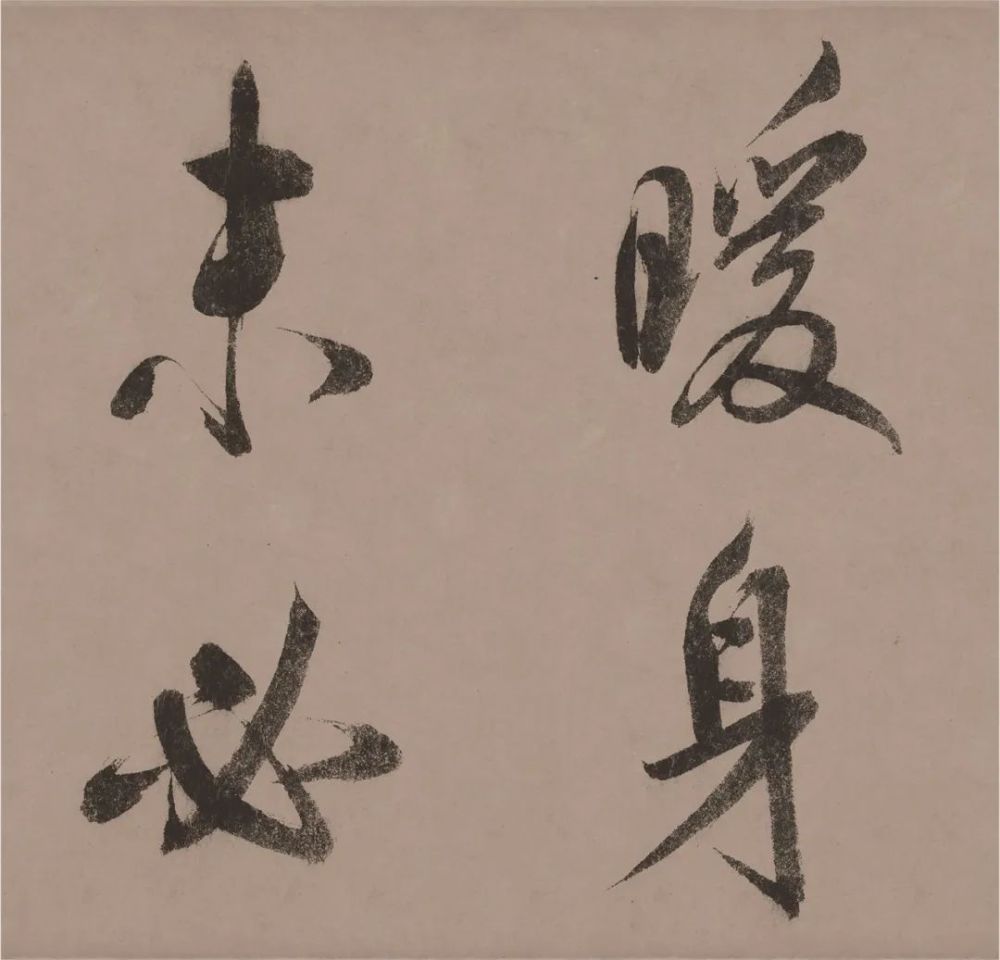 暖身
未必